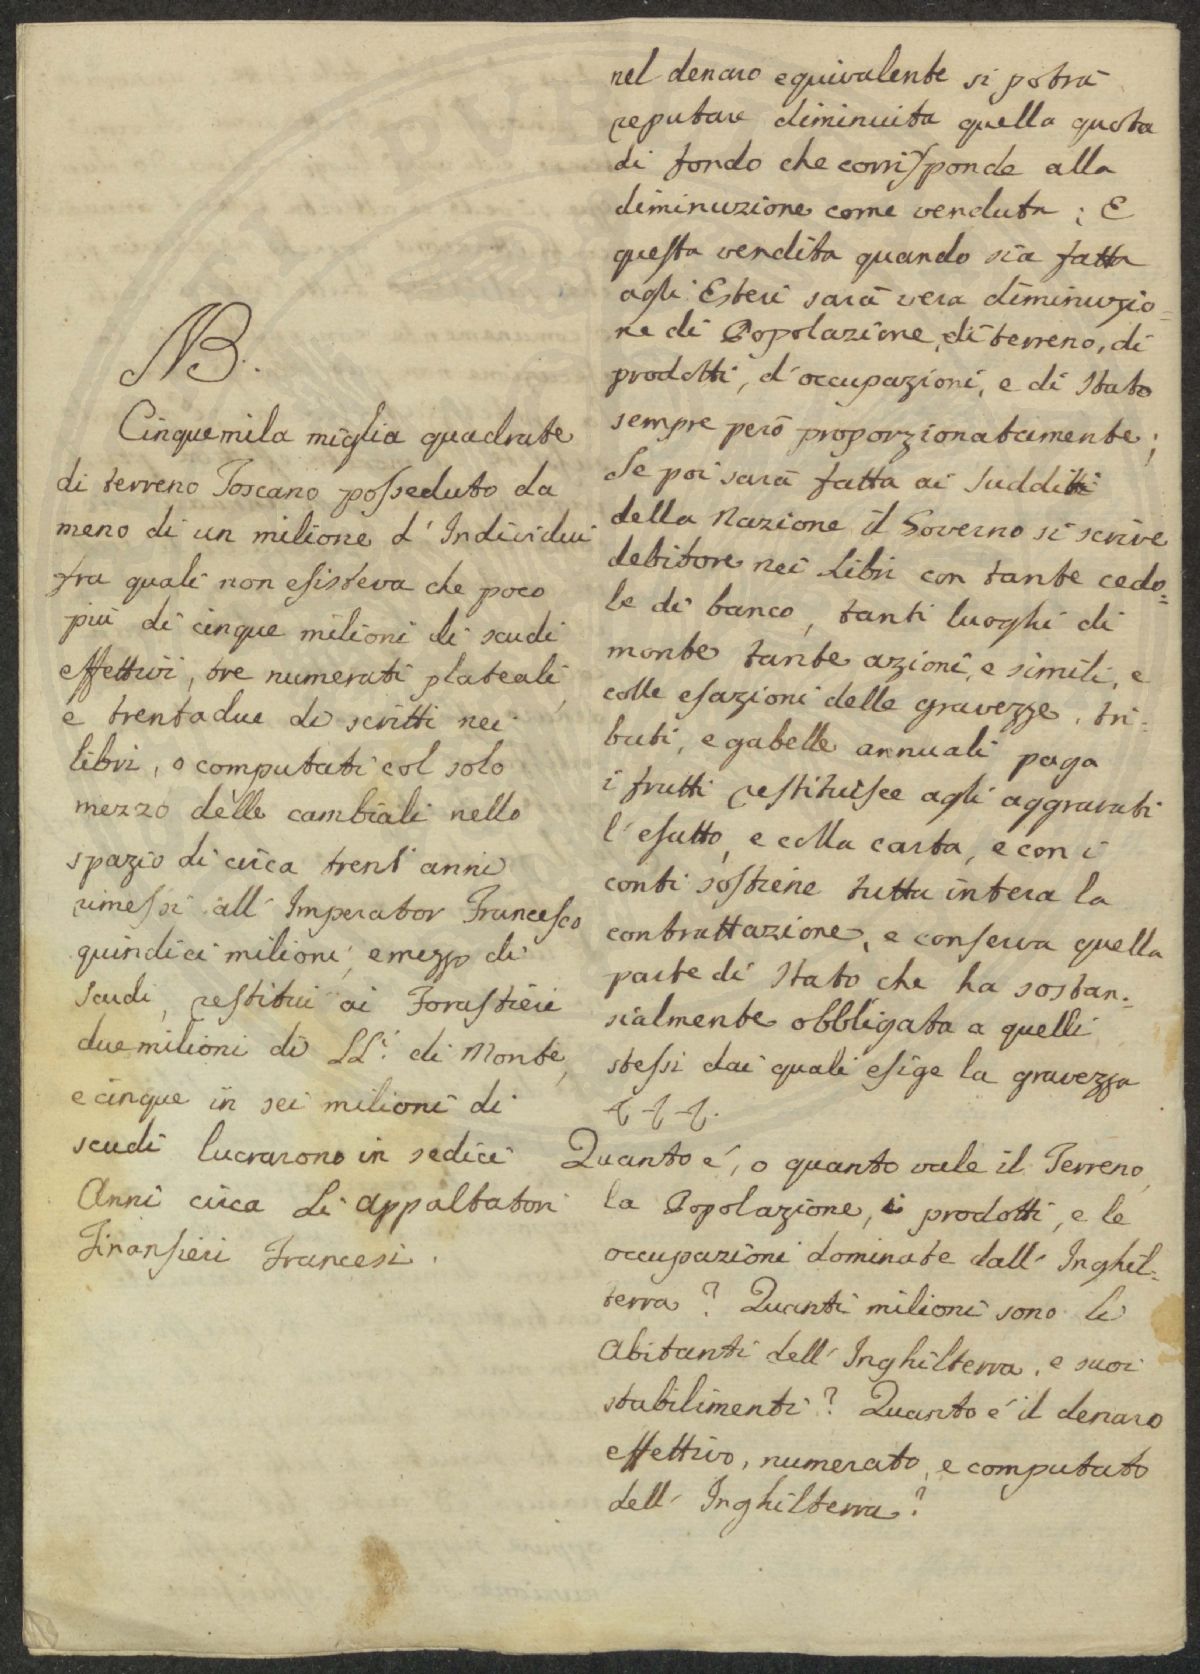 NB.
Cinquemila miglia quadrate
di terreno Toscano posseduto da
meno di un milione d'Individui
fra quali non esisteva che poco
più di cinque milioni di scudi
effettivi, tre numerati plateali,
e trentadue di scritti nei
libri, o computati col solo
mezzo delle cambiali nello
spazio di circa trent'anni
rimessi all'Imperator Francesco
quindici milioni, e mezzo di
scudi, restitui ai Forastieri
due milioni di LL.i di Monte,
e cinque in sei milioni di
scudi lucrarono in sedici
Anni circa Li Appaltatori
Finansieri Francesi.
nel denaro equivalente si potrà
reputare diminuita quella quota
di fondo che corrisponde alla
diminuzione come venduta; E
questa vendita quando sia fatta
agli Esteri sarà vera diminuzio=
ne di Popolazione, di terreno, di
prodotti, d'occupazioni, e di Stato
sempre però proporzionatamente;
Se poi sarà fatta ai Sudditi
della Nazione il Governo si scrive
debitore nei Libri con tante cedo=
le di banco, tanti luoghi di
monte tante azioni, e simili, e
colle esazioni delle gravezze, tri=
buti, e gabelle annuali paga
i frutti restituisce agli aggravati
l'esatto, e colla carta, e con i
conti sostiene tutta intera la
contrattazione, e conserva quella
parte di Stato che ha sostan=
sialmente obbligata a quelli
stessi dai quali esige la gravezza
Quanto è, o quanto vale il Terreno,
la Popolazione, i prodotti, e le
occupazioni dominate dall'Inghil=
terra? Quanti milioni sono li
Abitanti dell'Inghilterra, e suoi
stabilimenti? Quanto è il denaro
effettivo, numerato, e computato
dell'Inghilterra?